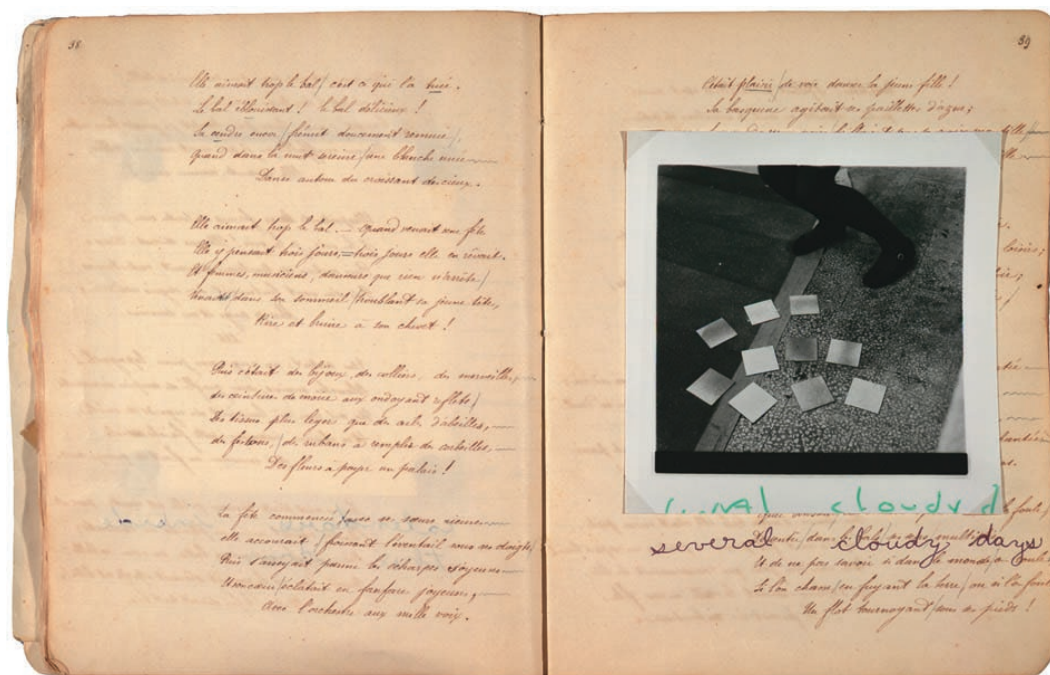 38
Elle aimait trop le bal / c'est ce qui l'a tuée.
Le bal éblouissant ! le bal délicieux !
Sa cendre encor / frémit doucement remuée /
Quand dans la nuit sereine / une blanche nuée
Danse autour du croissant des cieux.
Elle aimait trop le bal. — Quand venait une fête
Elle y pensait trois jours, — trois jours elle en rêvait.
Et femmes, musiciens, danseurs que rien n'arrête /
Venaient dans son sommeil / troublant sa jeune tête,
Rire et bruire à son chevet !
Puis c'était des bijoux, des colliers, des merveilles,
des ceintures de moire aux ondoyant reflets /
Des tissus plus légers que des ailes d'abeilles,
des festons, / des rubans à remplir des corbeilles,
Des fleurs à payer un palais !
La fête commencée, avec ses sœurs rieuses
elle accourait / froissant l'éventail sous ses doigts /
Puis s'asseyait parmi les écharpes soyeuses
Et son cœur / éclatait en fanfare joyeuse,
Avec l'orchestre aux mille voix.
39
C'était plaisir / de voir danser la jeune fille !
Sa basquine agitait ses paillettes d'azur ;
cloudy d
several cloudy days
Et de ne pas savoir si dans le monde
Si l'on chasse / en fuyant la terre / ou si l'on
Un flot tournoyant / sous ses pieds !